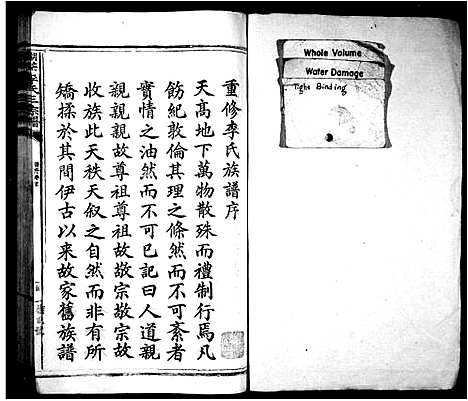 重修李氏族譜序
天高地下萬物散殊而禮制行焉凡
飭紀敦倫其理之條然而不可紊者
實情之油然而不可已記曰人道親
親親親故尊祖尊祖故敬宗敬宗故
收族此天秩天叙之自然而非有所
矯揉於其間伊古以來故家舊族譜
Whole Volume
Water Damage
Tight Binding